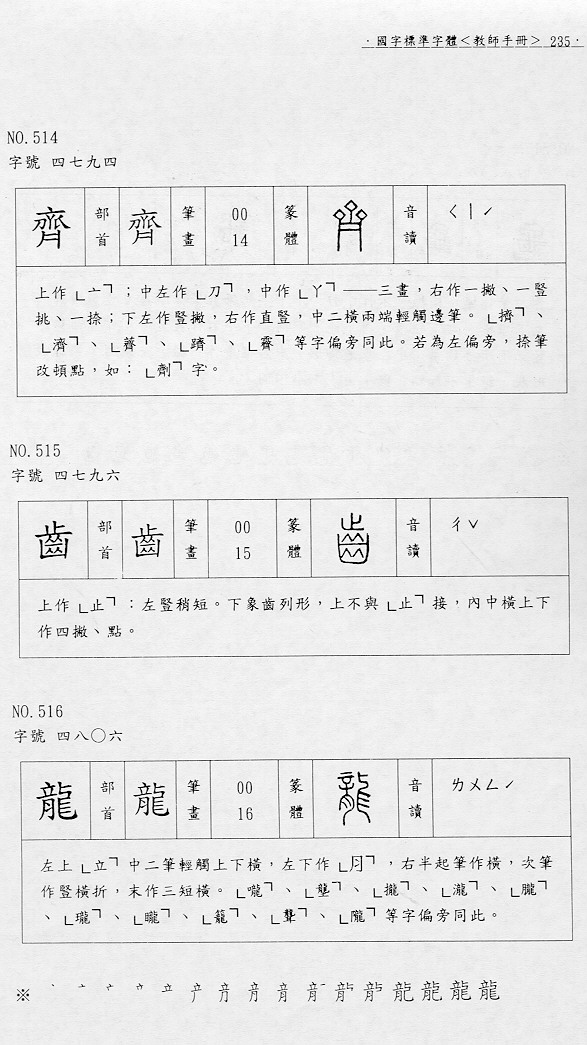 ·國字標準字體＜教師手冊＞ 235·
NO.514
字號 四七九四
齊 部首 齊 筆畫 00 14 篆體 音讀 ㄑㄧˊ
上作「亠」；中左作「刀」，中作「丫」——三畫，右作一撇、一豎
挑、一捺；下左作豎撇，右作直豎，中二橫兩端輕觸邊筆。「擠」、
「濟」、「薺」、「躋」、「霽」等字偏旁同此。若為左偏旁，捺筆
改頓點，如：「劑」字。
NO.515
字號 四七九六
齒 部首 齒 筆畫 00 15 篆體 音讀 ㄔˇ
上作「止」：左豎稍短。下象齒列形，上不與「止」接，內中橫上下
作四撇、點。
NO.516
字號 四八〇六
龍 部首 龍 筆畫 00 16 篆體 音讀 ㄌㄨㄥˊ
左上「立」中二筆輕觸上下橫，左下作「⺝」，右半起筆作橫，次筆
作豎橫折，末作三短橫。「嚨」、「壟」、「攏」、「瀧」、「朧」
、「瓏」、「矓」、「籠」、「聾」、「隴」等字偏旁同此。
※ 龍 龍 龍 龍